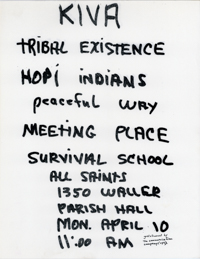 KIVA
TRIBAL EXISTENCE
HOPI INDIANS
peaceful WAY
MEETING PLACE
SURVIVAL SCHOOL
ALL SAINTS
1350 WALLER
PARISH HALL
MON. APRIL 10
11:00 AM